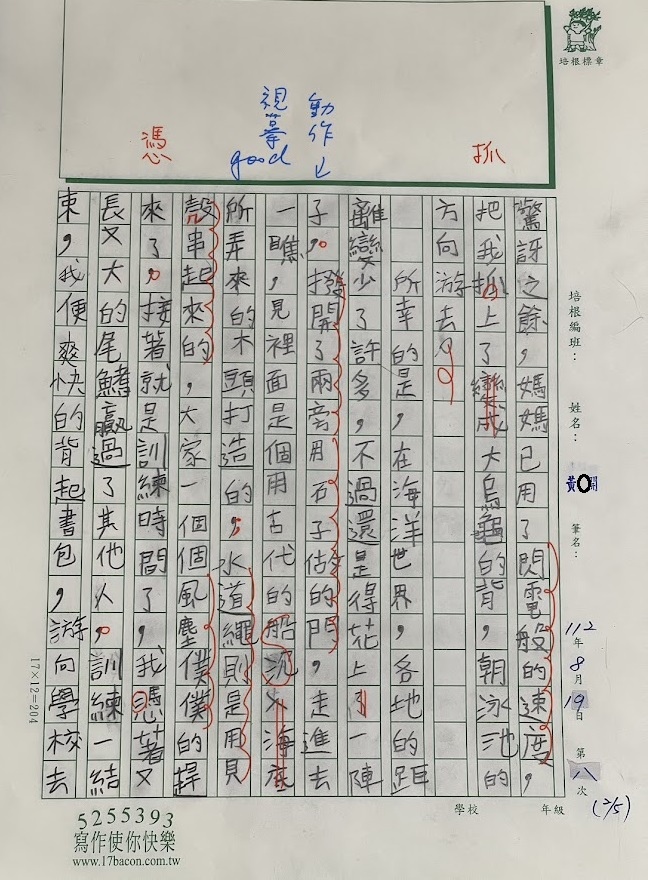 培根標章
抓
動作
視摹
good
憑
培根編班：
姓名：
黃開
筆名：
112年8月19日 第八次
(2/5)
驚訝之餘，媽媽已用了閃電般的速度，
把我抓上了變成大烏龜的背，朝泳池的
方向游去
所幸的是，在海洋世界，各地的距
離變少了許多，不過還是得花上了一陣
子。撥開了兩旁用石子做的門，走進去
一瞧，見裡面是個用古代的船沉入海底
所弄來的木頭打造的，水道繩則是用貝
殼串起來的，大家一個個風塵僕僕的趕
來了，接著就是訓練時間了，我憑著又
長又大的尾鰭贏過了其他人，訓練一結
束，我便爽快的背起書包，游向學校去
17×12=204
學校
年級
5255393
寫作使你快樂
www.17bacon.com.tw